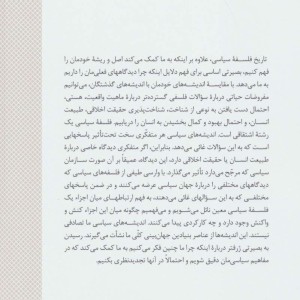 تاریخ فلسفهٔ سیاسی، علاوه بر اینکه به ما کمک می‌کند اصل و ریشهٔ خودمان را
فهم کنیم، بصیرتی اساسی برای فهم دلایل اینکه چرا دیدگاههای فعلی‌مان را داریم
به ما می‌دهد. با مقایسهٔ اندیشه‌های خودمان با اندیشه‌های گذشتگان، می‌توانیم
مفروضات حیاتی دربارهٔ سؤالات فلسفی گسترده‌تر دربارهٔ ماهیت واقعیت، هستی،
احتمال دست یافتن به نوعی از شناخت، شناخت‌پذیری حقیقت اخلاقی، طبیعت
انسان، و احتمال بهبود و کمال بخشیدن به انسان را دریابیم. فلسفهٔ سیاسی یک
رشتهٔ اشتقاقی است. اندیشه‌های سیاسی هر متفکری سخت تحت‌تأثیر پاسخهایی
است که به این سؤالات غائی می‌دهد. بنابراین، اگر متفکری دیدگاه خاصی دربارهٔ
طبیعت انسان یا حقیقت اخلاقی دارد، این دیدگاه، عمیقاً بر آن صورت سازمان
سیاسی که مرجّح می‌دارد تأثیر می‌گذارد. با وارسی طیفی از فلسفه‌های سیاسی که
دیدگاههای مختلفی را دربارهٔ جهان سیاسی عرضه می‌کنند و در ضمن پاسخهای
مختلفی که به این سؤالهای غائی می‌دهند، به فهم ارتباطهای میان اجزاء یک
فلسفهٔ سیاسی معین نائل می‌شویم و می‌فهمیم چگونه میان این اجزاء کنش و
واکنش وجود دارد و چه کارکردی پیدا می‌کنند. اندیشه‌های سیاسی ما تصادفی
نیستند. این اندیشه‌ها از عناصر بنیادین جهان‌بینی کلّی ما نشأت می‌گیرند. رسیدن
به بصیرتی ژرفتر دربارهٔ اینکه چرا ما چنین فکر می‌کنیم به ما کمک می‌کند که در
مفاهیم سیاسی‌مان دقیق شویم و احتمالاً در آنها تجدیدنظری بکنیم.